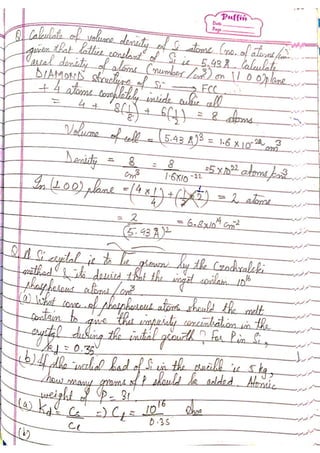 Puffin
Date
Page
Q Calculate of volume density of Si atoms (no. of atoms/cm³)
given that lattice constant of Si is 5.43Å. Calculate
areal density of atoms (number/cm²) on (100) plane
DIAMOND structure of Si → FCC
+ 4 atoms completely inside cubic cell
= 4 + 8(1/8) + 6(1/2) = 8 atoms
Volume of cell = (5.43 Å)³ = 1.6 x 10⁻²² cm³
Density = 8/cm³ = 8/1.6x10⁻²² = 5 x 10²² atoms/cm³
In (100) plane = (4 x 1/4) + = 2 atoms
= 2/(5.43 Å)² = 6.8x10¹⁴ cm⁻²
Q. A Si crystal is to be grown by the Czochralski
method & it is desired that the ingot contain 10¹⁶
phosphorous atoms/cm³
(a) What conc of phosphorous atoms should the melt
contain to give this impurity concentration in the
crystal during the initial growth? For P in Si,
kd = 0.35
(b) If the initial load of Si in the crucible is 5 kg,
how many grams of P should be added. Atomic
weight of P = 31
(a) Kd = Cs/Cl => Cl = 10¹⁶/0.35
(b)